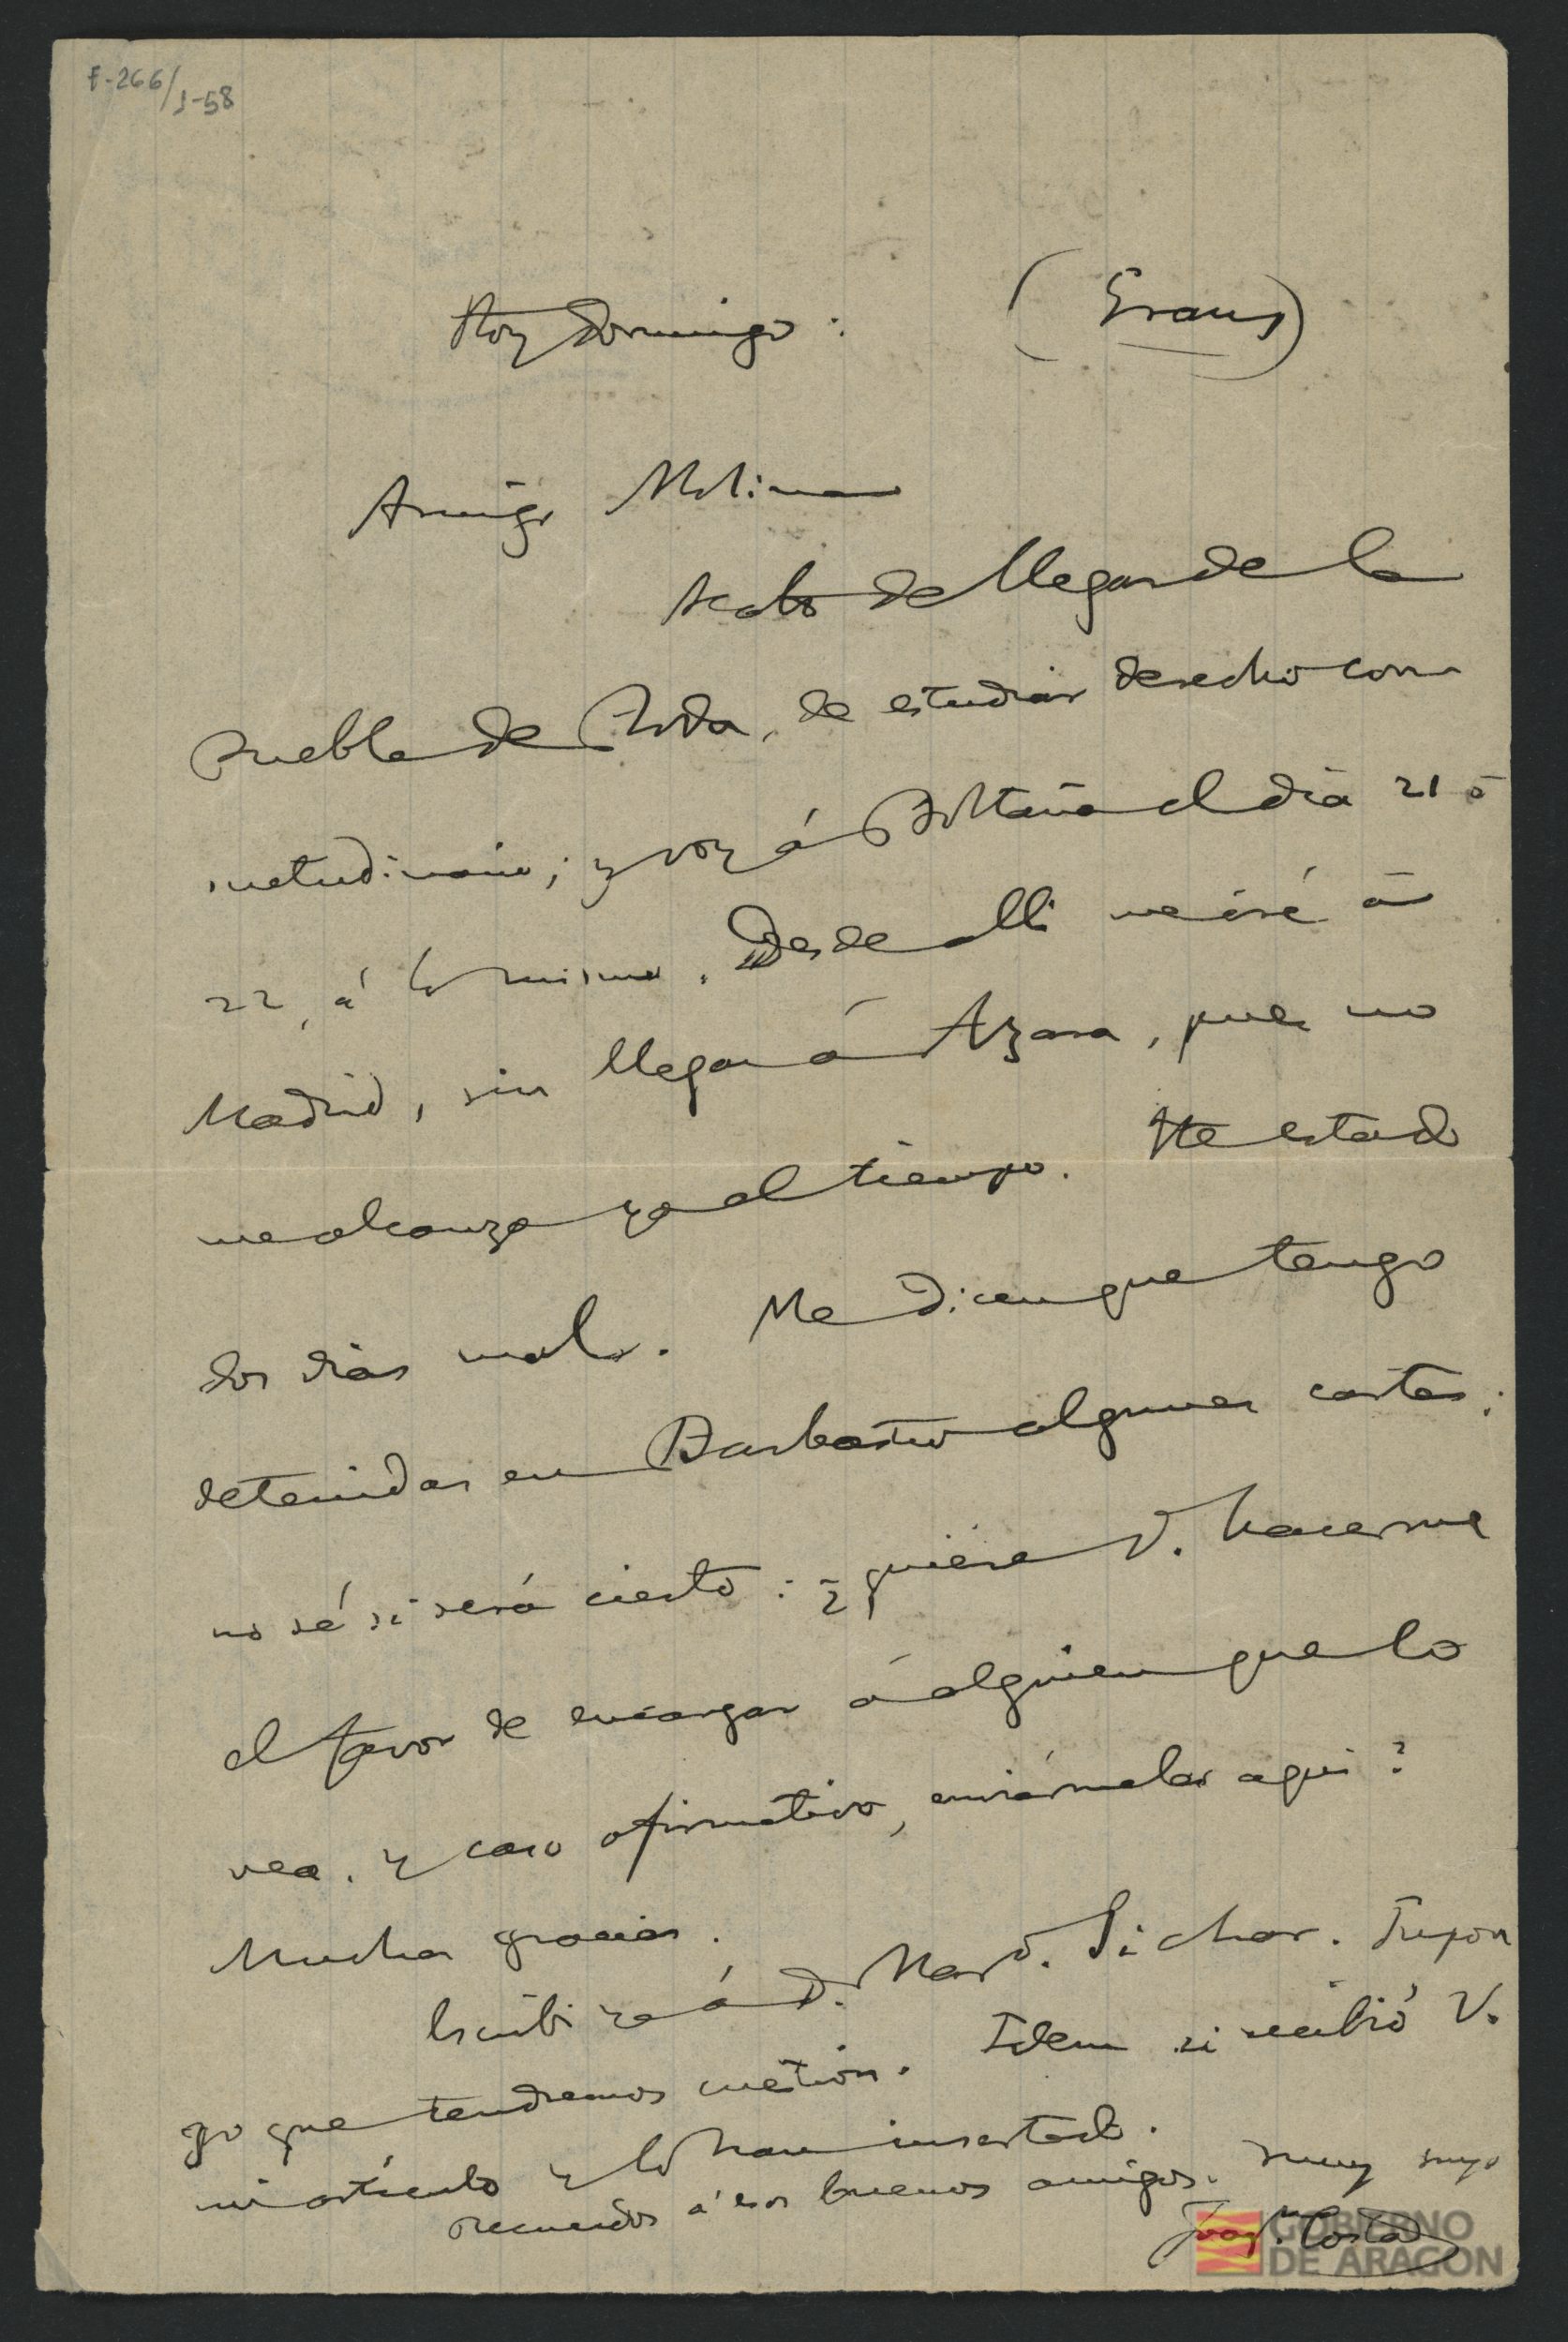 F-266/J-58
Hoy Domingo: (Graus)
Amigo Molina
Acabo de llegar de la
Puebla de Roda, de estudiar derecho con-
suetudinario; y voy á Boltaña el dia 21 ó
22, á lo mismo. Desde alli me iré á
Madrid, sin llegar á Azara, pues no
me alcanza ya el tiempo. He estado
dos dias malo. Me dicen que tengo
detenidas en Barbastro algunas cartas;
no sé si será cierto: ¿quiere V. hacerme
el favor de encargar á alguien que lo
vea, y caso afirmativo, enviármelas aqui?
Muchas gracias.
Escribi ya á D. Mar.º Sichar. Supon
go que tendremos cuestión. Idem si recibió V.
mi artículo y lo han insertado.
Recuerdos á esos buenos amigos. Muy suyo
Joaq.n Costa
GOBIERNO
DE ARAGON